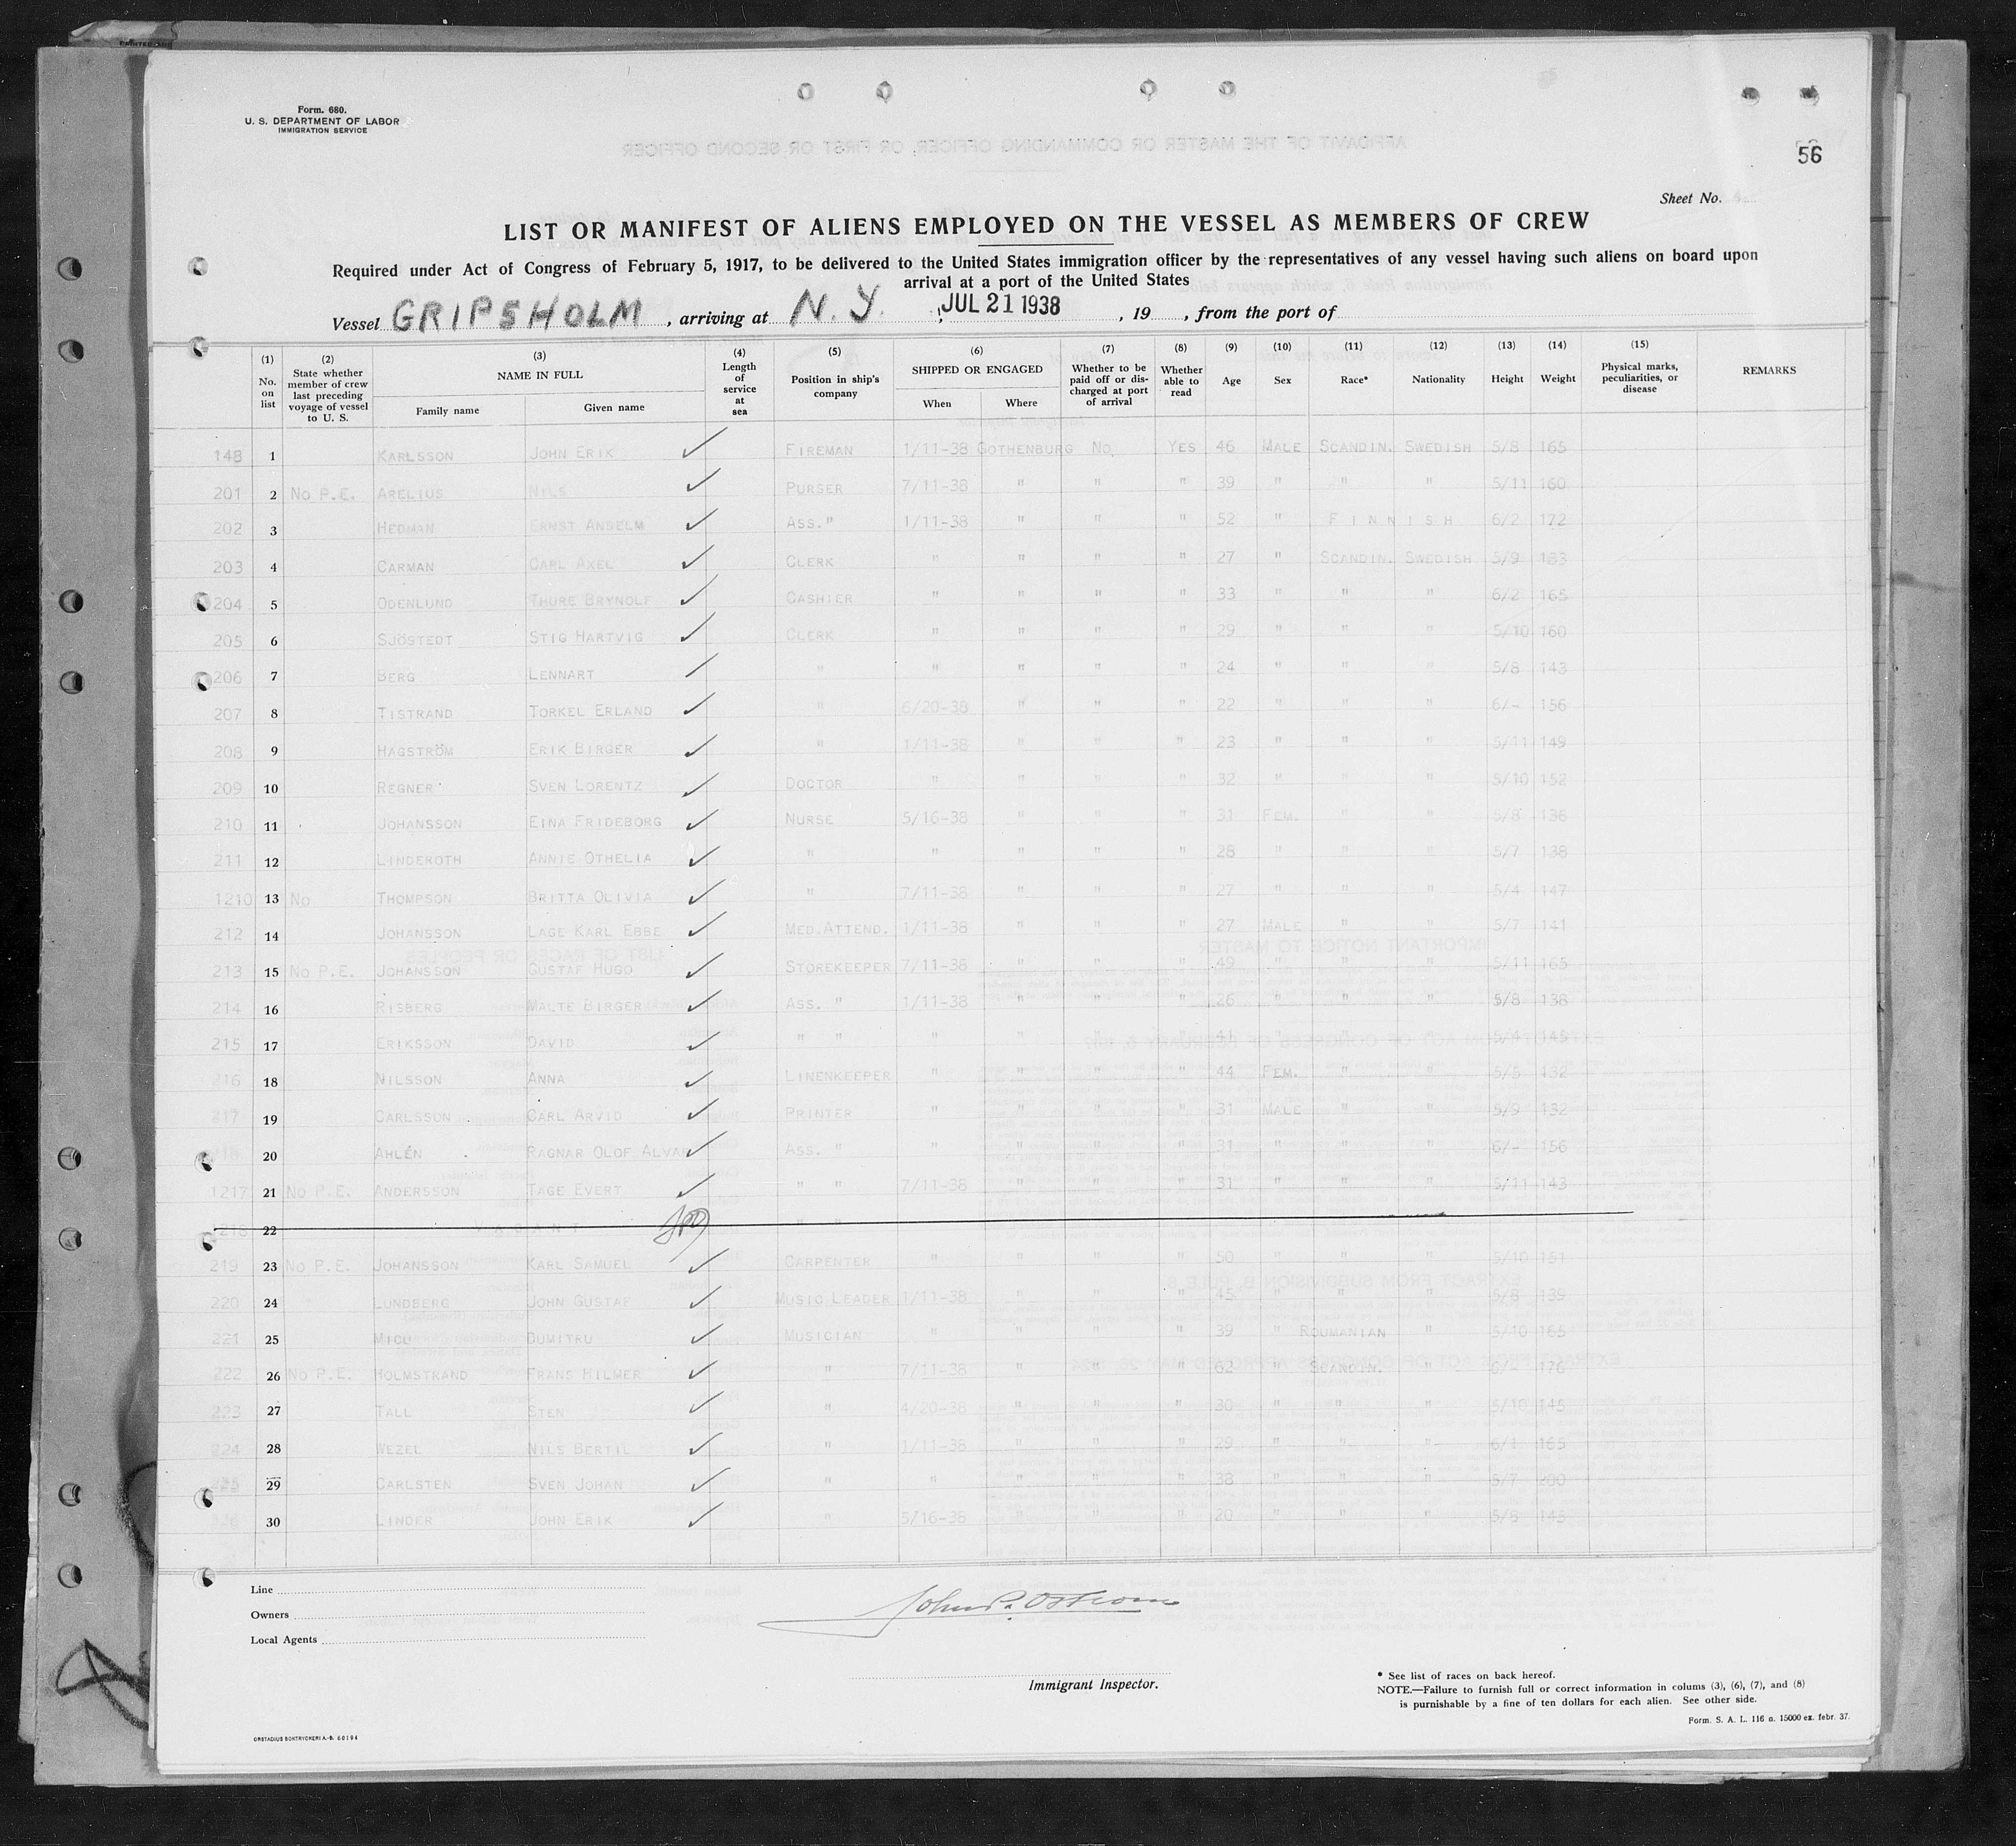 Form. 680.
U. S. DEPARTMENT OF LABOR
IMMIGRATION SERVICE
56
Sheet No.
LIST OR MANIFEST OF ALIENS EMPLOYED ON THE VESSEL AS MEMBERS OF CREW
Required under Act of Congress of February 5, 1917, to be delivered to the United States immigration officer by the representatives of any vessel having such aliens on board upon
arrival at a port of the United States
Vessel GRIPSHOLM, arriving at N. Y. JUL 21 1938, 19, from the port of
(1) No. on list (2) State whether member of crew last preceding voyage of vessel to U. S. (3) NAME IN FULL Family name Given name (4) Length of service at sea (5) Position in ship's company (6) SHIPPED OR ENGAGED When Where (7) Whether to be paid off or discharged at port of arrival (8) Whether able to read (9) Age (10) Sex (11) Race* (12) Nationality (13) Height (14) Weight (15) Physical marks, peculiarities, or disease REMARKS
148 1 KARLSSON JOHN ERIK ✓ FIREMAN 1/11-38 GOTHENBURG NO. YES 46 MALE SCANDIN. SWEDISH 5/8 165
201 2 NO P.E. ARELIUS NILS ✓ PURSER 7/11-38 " " " 39 " " " 5/11 160
202 3 HEDMAN ERNST ANSELM ✓ ASS. " 1/11-38 " " " 52 " FINNISH 6/2 172
203 4 CARMAN CARL AXEL ✓ CLERK " " " " 27 " SCANDIN. SWEDISH 5/9
204 5 ODENLUND THURE BRYNOLF ✓ CASHIER " " " " 33 " " " 6/2 165
205 6 SJÖSTEDT STIG HARTVIG ✓ CLERK " " " " 29 " " " 5/10 160
206 7 BERG LENNART ✓ " " " " " 24 " " " 5/8 143
207 8 TISTRAND TORKEL ERLAND ✓ " 6/20-38 " " " 22 " " " 6/- 156
208 9 HAGSTRÖM ERIK BIRGER ✓ " 1/11-38 " " " 23 " " " 5/11 149
209 10 REGNER SVEN LORENTZ ✓ DOCTOR " " " " 32 " " " 5/10 152
210 11 JOHANSSON EINA FRIDEBORG ✓ NURSE 5/16-38 " " " 31 FEM. " " 5/8 136
211 12 LINDEROTH ANNIE OTHELIA ✓ " " " " " 28 " " " 5/7 138
1210 13 NO THOMPSON BRITTA OLIVIA ✓ " 7/11-38 " " " 27 " " " 5/4 147
212 14 JOHANSSON LAGE KARL EBBE ✓ MED.ATTEND. 1/11-38 " " " 27 MALE " " 5/7 141
213 15 NO P.E. JOHANSSON GUSTAF HUGO ✓ STOREKEEPER 7/11-38 " " " 49 " " " 5/11 165
214 16 RISBERG MALTE BIRGER ✓ ASS. " 1/11-38 " " " 26 " " " 5/8 138
215 17 ERIKSSON DAVID ✓ " " " " " " 41 " " " 5/4 145
216 18 NILSSON ANNA ✓ LINENKEEPER " " " " 44 FEM. " " 5/5 132
217 19 CARLSSON CARL ARVID ✓ PRINTER " " " " 31 MALE " " 5/9 132
20 AHLÉN RAGNAR OLOF ALVAR ✓ ASS. " " " " " 31 " " " 6/- 156
1217 21 NO P.E. ANDERSSON TAGE EVERT ✓ " " 7/11-38 " " " 31 " " " 5/11 143
1218 22 VACANT " "
219 23 NO P.E. JOHANSSON KARL SAMUEL ✓ CARPENTER " " " " 50 " " " 5/10 151
220 24 LUNDBERG JOHN GUSTAF ✓ MUSIC LEADER 1/11-38 " " " 45 " " " 5/8 139
221 25 MICU DUMITRU ✓ MUSICIAN " " " " 39 " ROUMANIAN " 5/10 165
222 26 NO P.E. HOLMSTRAND FRANS HILMER ✓ " 7/11-38 " " " 62 " SCANDIN. " 6/- 176
223 27 TALL STEN ✓ " 4/20-38 " " " 30 " " " 5/10 145
224 28 WEZEL NILS BERTIL ✓ " 1/11-38 " " " 29 " " " 6/1 165
225 29 CARLSTEN SVEN JOHAN ✓ " " " " " 38 " " " 5/7 200
30 LINDER JOHN ERIK ✓ " 5/16-38 " " " 20 " " " 5/8 145
Line
Owners
Local Agents
Immigrant Inspector.
* See list of races on back hereof.
NOTE.—Failure to furnish full or correct information in colums (3), (6), (7), and (8)
is punishable by a fine of ten dollars for each alien. See other side.
Form. S. A. L. 116 n. 15000 ex. febr. 37.
ORSTADIUS BOKTRYCKERI A.-B. 60194